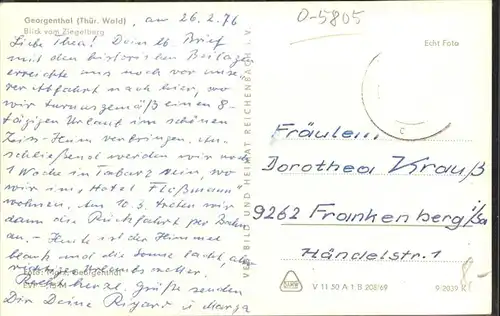 Georgenthal (Thür. Wald)
Blick vom Ziegelberg
, am 26.2.76
O-5805
Echt Foto
Liebe Thea! Dein lb. Brief
mit den historischen Beilagen
erreichte uns noch vor unse-
rer Abfahrt nach hier, wo
wir turnusgemäß einen 8-
tägigen Urlaub im schönen
Heim verbringen. An-
schließend werden wir noch
1 Woche in Tabarz sein, wo
wir im Hotel Floßmann
wohnen. Am 10.3. treten wir
dann die Rückfahrt per Bahn
an. – Heute ist der Himmel
blau und die Sonne lacht, also
richtiges Urlaubswetter.
Recht herzl. Grüße senden
Dir Deine Rigard u Marga
VERLAG BILD UND HEIMAT REICHENBACH i. V.
Fräulein
Dorothea Krauß
9262 Frankenberg i/Sa
Händelstr. 1
V 11 50 A 1 B 208/69
9/2039 K